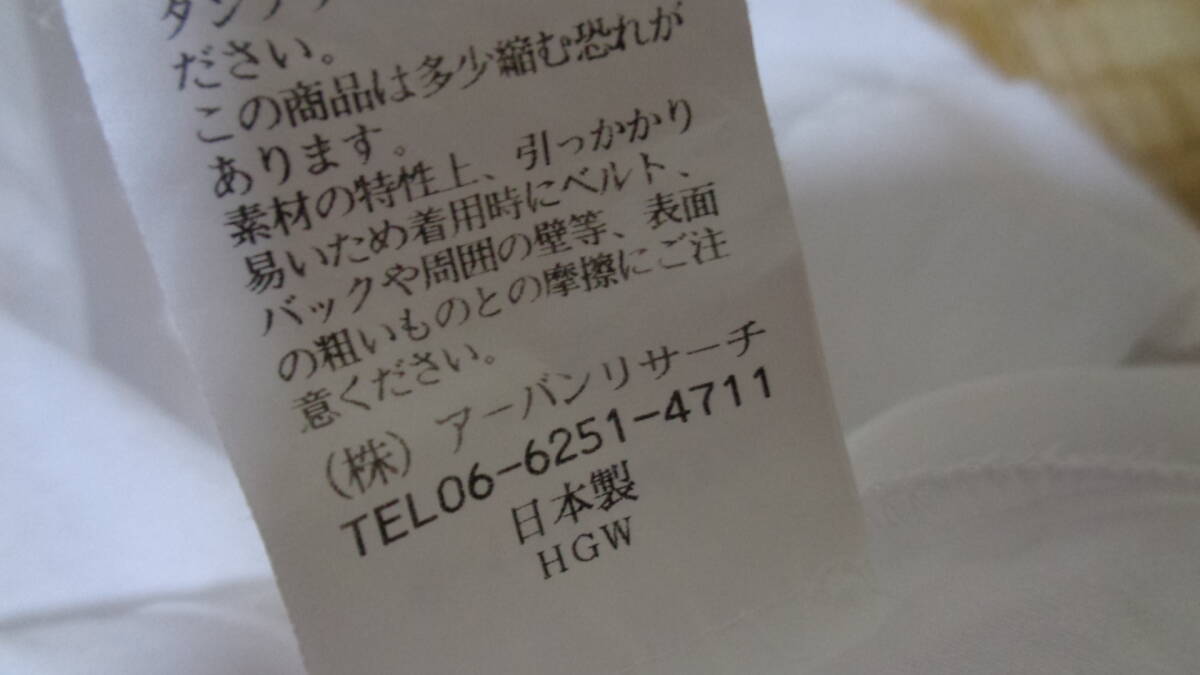 ださい。
この商品は多少縮む恐れが
あります。
素材の特性上、引っかかり
易いため着用時にベルト、
バックや周囲の壁等、表面
の粗いものとの摩擦にご注
意ください。
（株）アーバンリサーチ
TEL06-6251-4711
日本製
HGW